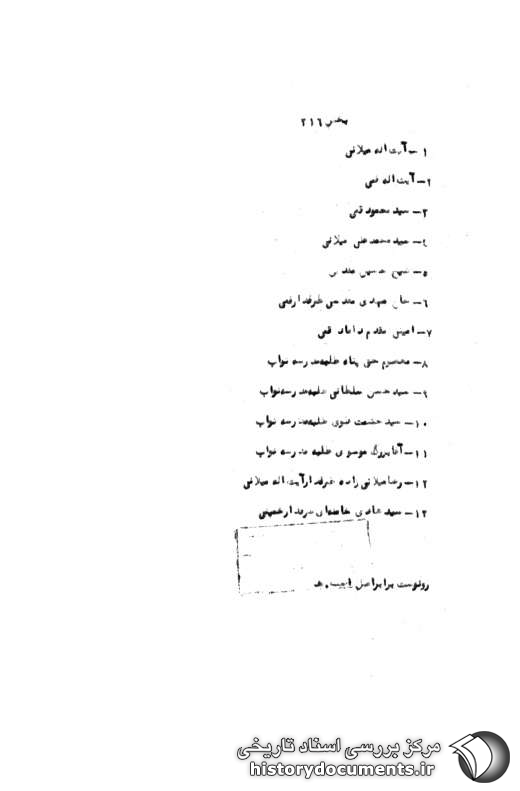 بخش ۲۱٦
۱ – آیت اله میلانی
۲ – آیت اله قمی
۳ – سید محمود قمی
٤ – سید محمد علی میلانی
۵ – شیخ
٦ – مهدی مقدسی طرفدار قمی
۷ – امینی مقدم داماد قمی
۸ – معصوم حق پناه طلبه مدرسه نواب
۹ – سید حسن سلطانی طلبه مدرسه نواب
۱۰ – سید حشمت طلبه مدرسه نواب
۱۱ – آقا بزرگ موسوی طلبه مدرسه نواب
۱۲ – رضا میلانی زاده طرفدار آیت اله میلانی
۱۳ – سید هادی خامنه‌ای طرفدار خمینی
رونوست برابر اصل است . هـ
مرکز بررسی اسناد تاریخی
historydocuments.ir